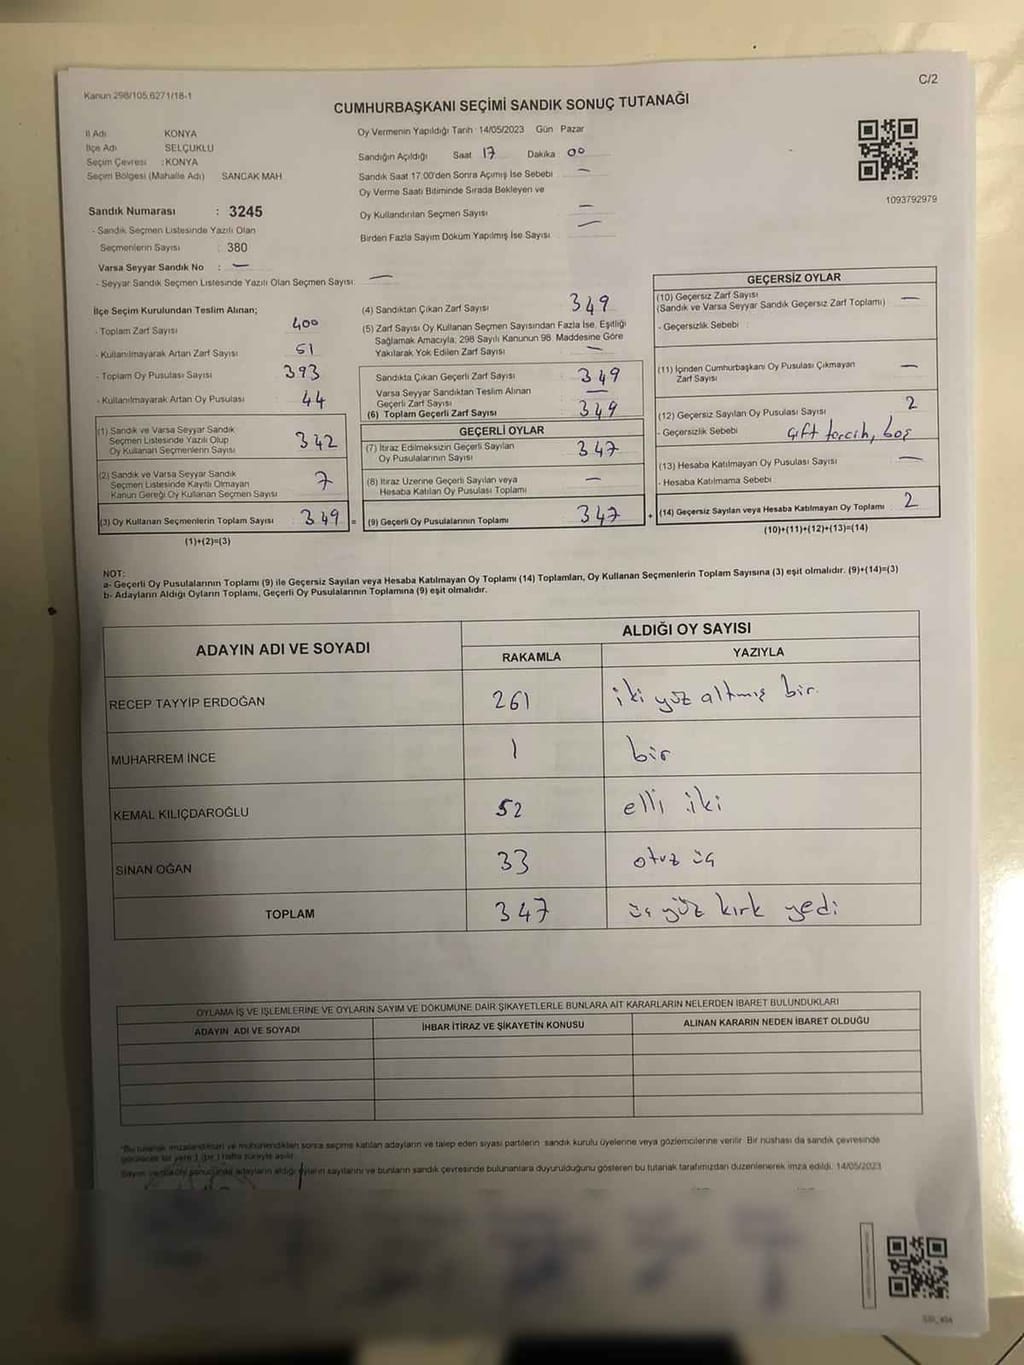 Kanun 298/105.6271/18-1
C/2
CUMHURBAŞKANI SEÇİMİ SANDIK SONUÇ TUTANAĞI
İl Adı KONYA
İlçe Adı SELÇUKLU
Seçim Çevresi : KONYA
Seçim Bölgesi (Mahalle Adı) SANCAK MAH
Oy Vermenin Yapıldığı Tarih 14/05/2023 Gün Pazar
Sandığın Açıldığı Saat 17 Dakika 00
Sandık Saat 17:00'den Sonra Açımış İse Sebebi —
Oy Verme Saati Bitiminde Sırada Bekleyen ve
Oy Kullandırılan Seçmen Sayısı —
Birden Fazla Sayım Döküm Yapılmış İse Sayısı —
1093792979
Sandık Numarası : 3245
- Sandık Seçmen Listesinde Yazılı Olan
Seçmenlerin Sayısı 380
Varsa Seyyar Sandık No : —
- Seyyar Sandık Seçmen Listesinde Yazılı Olan Seçmen Sayısı: —
İlçe Seçim Kurulundan Teslim Alınan;
- Toplam Zarf Sayısı 400
- Kullanılmayarak Artan Zarf Sayısı 51
- Toplam Oy Pusulası Sayısı 393
- Kullanılmayarak Artan Oy Pusulası 44
(1) Sandık ve Varsa Seyyar Sandık
Seçmen Listesinde Yazılı Olup
Oy Kullanan Seçmenlerin Sayısı 342
(2) Sandık ve Varsa Seyyar Sandık
Seçmen Listesinde Kayıtlı Olmayan
Kanun Gereği Oy Kullanan Seçmen Sayısı 7
(3) Oy Kullanan Seçmenlerin Toplam Sayısı 349 =
(1)+(2)=(3)
(4) Sandıktan Çıkan Zarf Sayısı 349
(5) Zarf Sayısı Oy Kullanan Seçmen Sayısından Fazla İse, Eşitliği
Sağlamak Amacıyla, 298 Sayılı Kanunun 98. Maddesine Göre
Yakılarak Yok Edilen Zarf Sayısı —
Sandıkta Çıkan Geçerli Zarf Sayısı 349
Varsa Seyyar Sandıktan Teslim Alınan
Geçerli Zarf Sayısı —
(6) Toplam Geçerli Zarf Sayısı 349
GEÇERLİ OYLAR
(7) İtiraz Edilmeksizin Geçerli Sayılan
Oy Pusulalarının Sayısı 347
(8) İtiraz Üzerine Geçerli Sayılan veya
Hesaba Katılan Oy Pusulası Toplamı —
(9) Geçerli Oy Pusulalarının Toplamı 347 +
GEÇERSİZ OYLAR
(10) Geçersiz Zarf Sayısı
(Sandık ve Varsa Seyyar Sandık Geçersiz Zarf Toplamı) —
- Geçersizlik Sebebi :
(11) İçinden Cumhurbaşkanı Oy Pusulası Çıkmayan
Zarf Sayısı —
(12) Geçersiz Sayılan Oy Pusulası Sayısı 2
- Geçersizlik Sebebi Çift tercih, boş
(13) Hesaba Katılmayan Oy Pusulası Sayısı —
- Hesaba Katılmama Sebebi
(14) Geçersiz Sayılan veya Hesaba Katılmayan Oy Toplamı 2
(10)+(11)+(12)+(13)=(14)
NOT:
a- Geçerli Oy Pusulalarının Toplamı (9) ile Geçersiz Sayılan veya Hesaba Katılmayan Oy Toplamı (14) Toplamları, Oy Kullanan Seçmenlerin Toplam Sayısına (3) eşit olmalıdır. (9)+(14)=(3)
b- Adayların Aldığı Oyların Toplamı, Geçerli Oy Pusulalarının Toplamına (9) eşit olmalıdır.
ADAYIN ADI VE SOYADI ALDIĞI OY SAYISI
RAKAMLA YAZIYLA
RECEP TAYYİP ERDOĞAN 261 iki yüz altmış bir.
MUHARREM İNCE 1 bir
KEMAL KILIÇDAROĞLU 52 elli iki
SİNAN OĞAN 33 otuz üç
TOPLAM 347 üç yüz kırk yedi
OYLAMA İŞ VE İŞLEMLERİNE VE OYLARIN SAYIM VE DÖKÜMÜNE DAİR ŞİKAYETLERLE BUNLARA AİT KARARLARIN NELERDEN İBARET BULUNDUKLARI
ADAYIN ADI VE SOYADI İHBAR İTİRAZ VE ŞİKAYETİN KONUSU ALINAN KARARIN NEDEN İBARET OLDUĞU
*Bu tutanak imzalandıktan ve mühürlendikten sonra seçime katılan adayların ve talep eden siyasi partilerin sandık kurulu üyelerine veya gözlemcilerine verilir. Bir nüshası da sandık çevresinde
görülecek bir yere 1 (bir) hafta süreyle asılır.
adayların aldığı oyların sayılarını ve bunların sandık çevresinde bulunanlara duyurulduğunu gösteren bu tutanak tarafımızdan düzenlenerek imza edildi. 14/05/2023